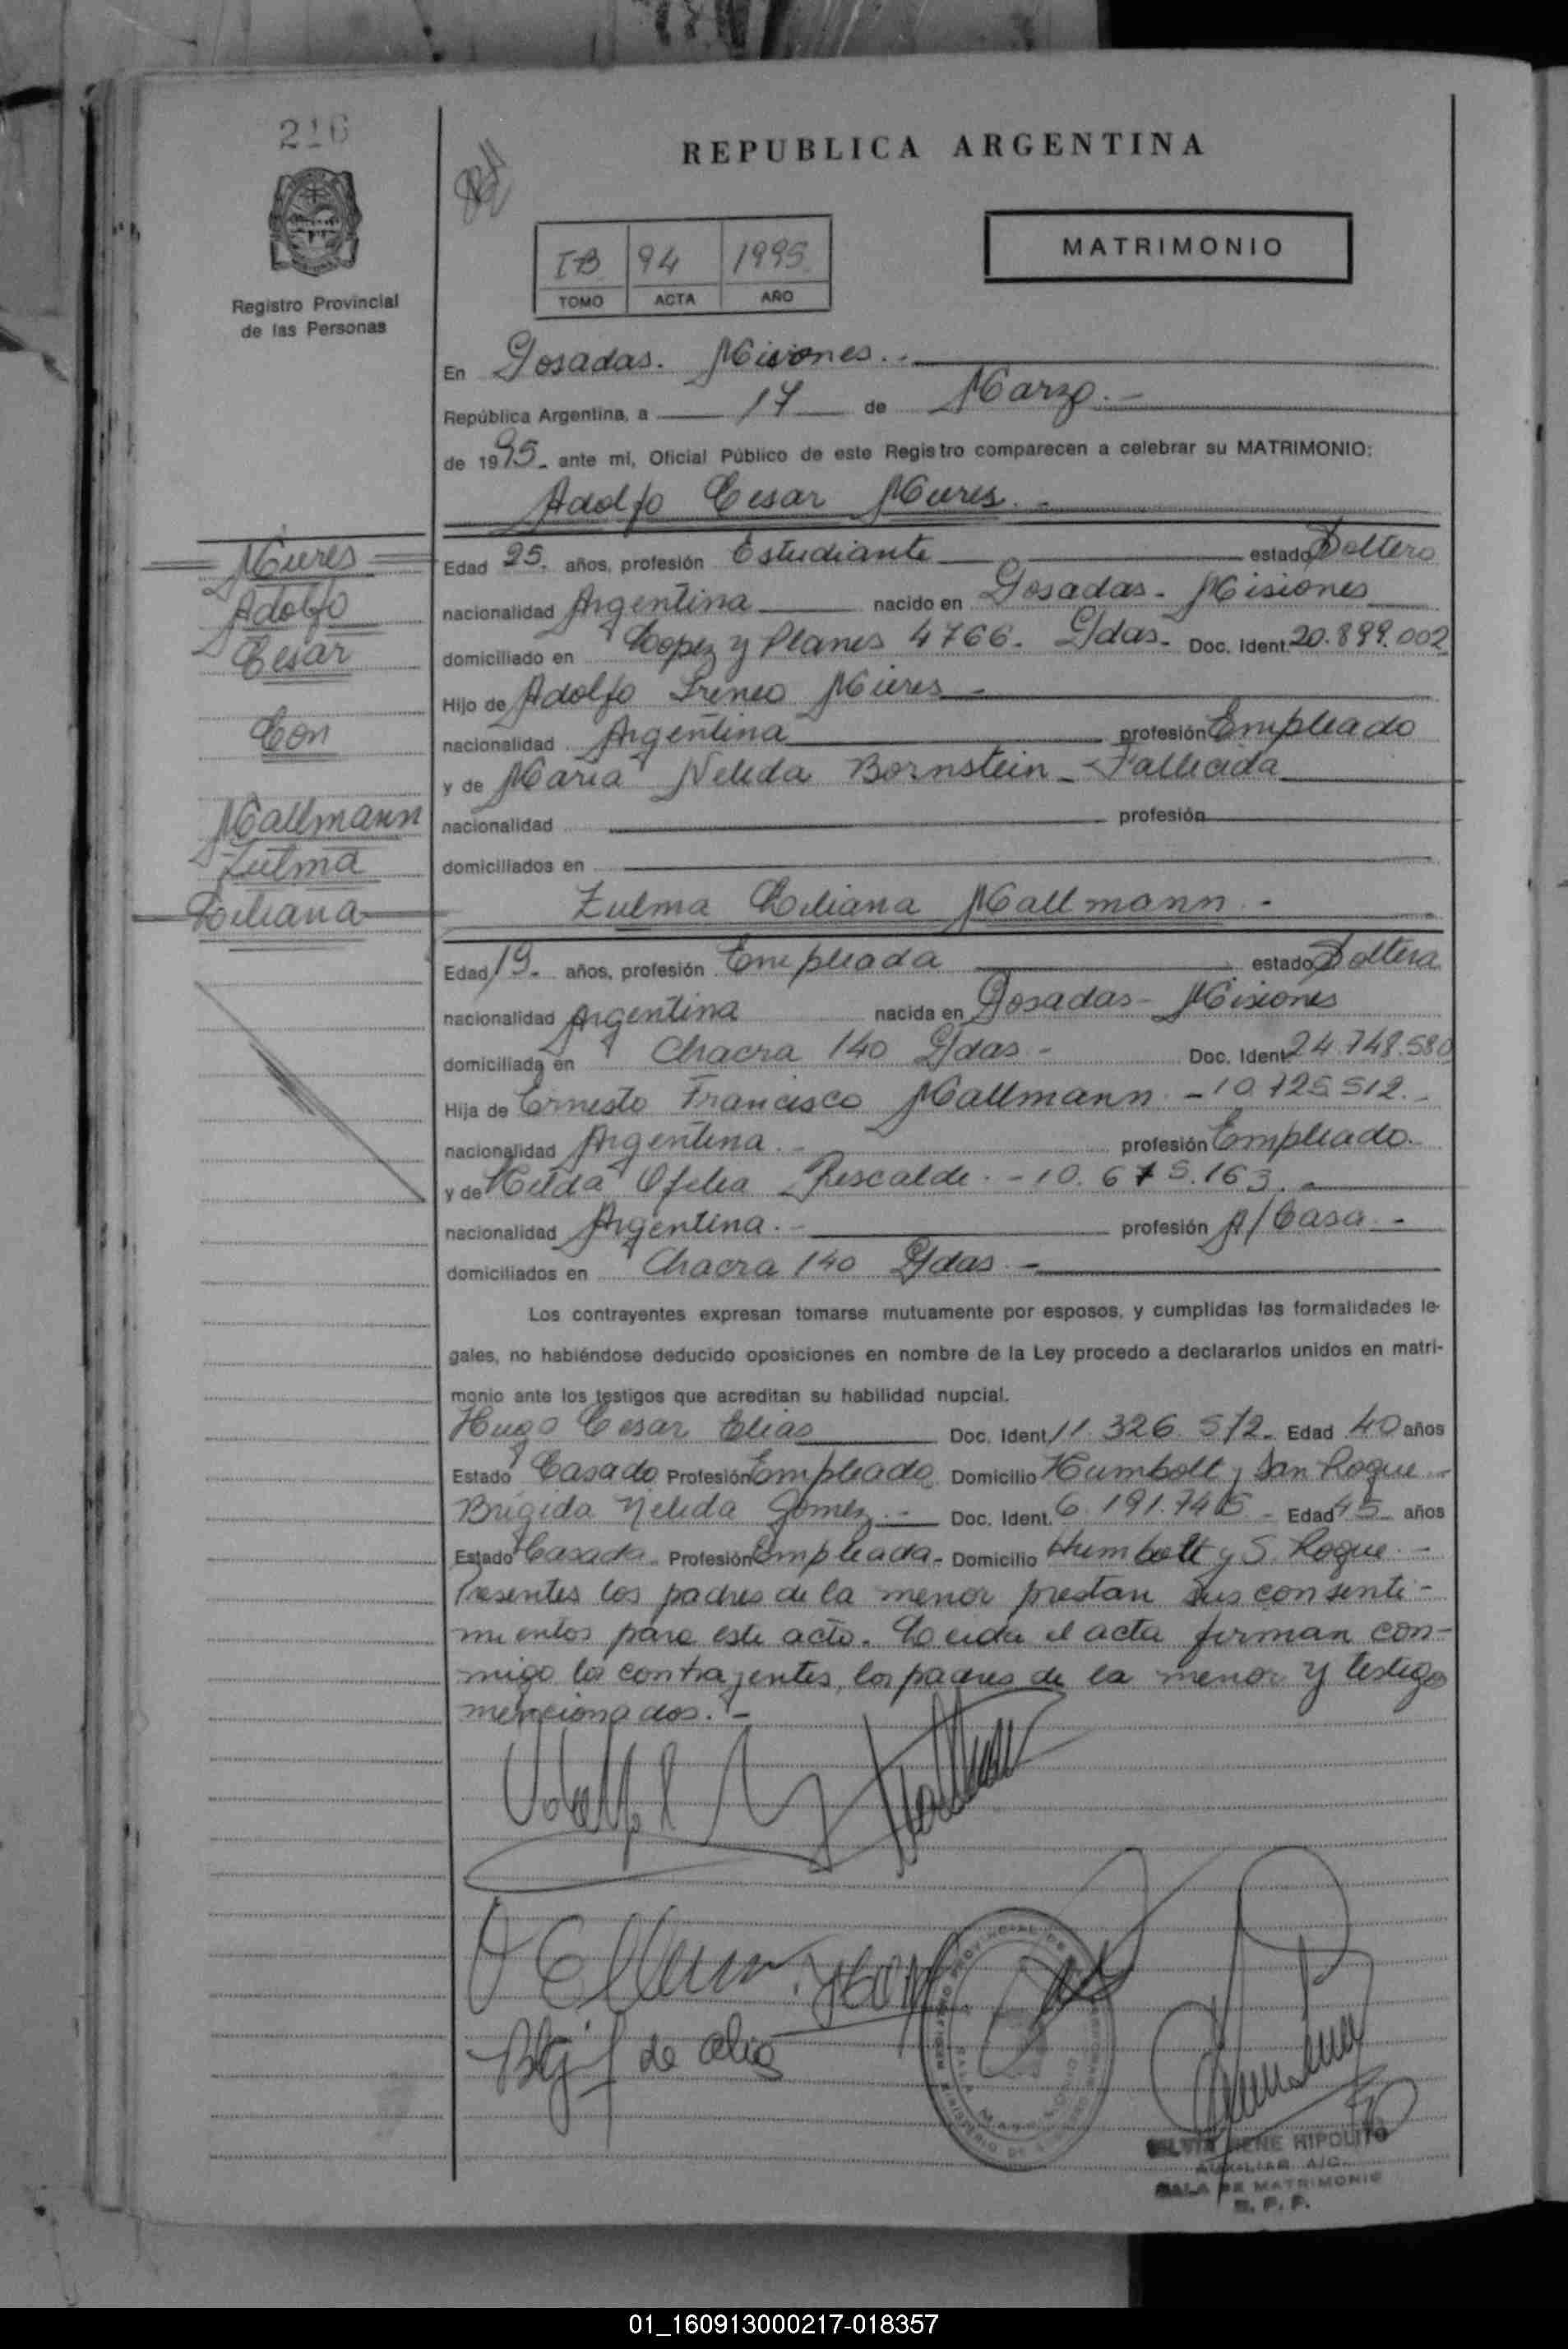 216
REPUBLICA ARGENTINA
MATRIMONIO
94 1995
TOMO ACTA AÑO
Registro Provincial
de las Personas
En Posadas. Misiones. -
República Argentina, a 17 de Marzo. -
de 1995- ante mi, Oficial Público de este Registro comparecen a celebrar su MATRIMONIO:
Adolfo Cesar Mieres. -
Mieres
Adolfo
Cesar
Con
Mallmann
Zulma
Liliana
Edad 25. años, profesión Estudiante estado Soltero
nacionalidad Argentina nacido en Posadas - Misiones
domiciliado en Lopez y Planes 4766. Pdas- Doc. Ident. 20.899.002
Hijo de Adolfo Ireneo Mieres -
nacionalidad Argentina profesión Empleado
y de Maria Nelida Bornstein - Fallecida
nacionalidad profesión
domiciliados en
Zulma Liliana Mallmann -
Edad 19- años, profesión Empleada estado Soltera
nacionalidad Argentina nacida en Posadas - Misiones
domiciliada en Chacra 140 Pdas - Doc. Ident. 24.748.580
Hija de Ernesto Francisco Mallmann - 10.725.512.-
nacionalidad Argentina. - profesión Empleado.
y de Hilda Ofelia Rescalde. - 10.675.163. -
nacionalidad Argentina. - profesión A/Casa -
domiciliados en Chacra 140 Pdas -
Los contrayentes expresan tomarse mutuamente por esposos, y cumplidas las formalidades le-
gales, no habiéndose deducido oposiciones en nombre de la Ley procedo a declararlos unidos en matri-
monio ante los testigos que acreditan su habilidad nupcial.
Hugo Cesar Elias Doc. Ident. 11.326.512- Edad 40 años
Estado Casado Profesión Empleado Domicilio Humbolt y San Roque -
Brigida Nelida Gomez. - Doc. Ident. 6.191.745 - Edad 45 años
Estado Casada - Profesión Empleada - Domicilio Humbolt y S. Roque. -
Presentes los padres de la menor prestan sus consenti-
mientos para este acto. Leida el acta firman con-
migo los contrayentes, los padres de la menor y testigos
mencionados. -
de Elias
SILVIA IRENE HIPOLITO
AUXILIAR A/C.
SALA DE MATRIMONIO
R. P. P.
01_160913000217-018357